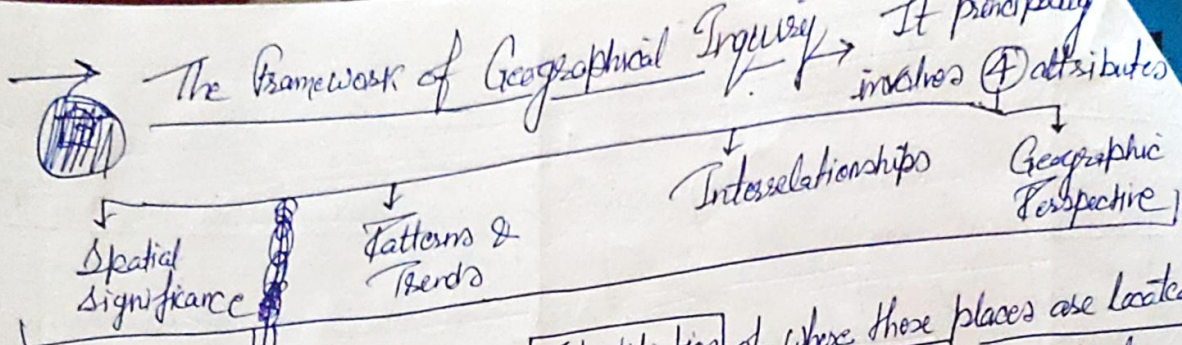 The Framework of Geographical Inquiry → It principally
involves ④ attributes
Spatial
Significance
Patterns &
Trends
Interrelationships
Geographic
Perspective
of where these places are located